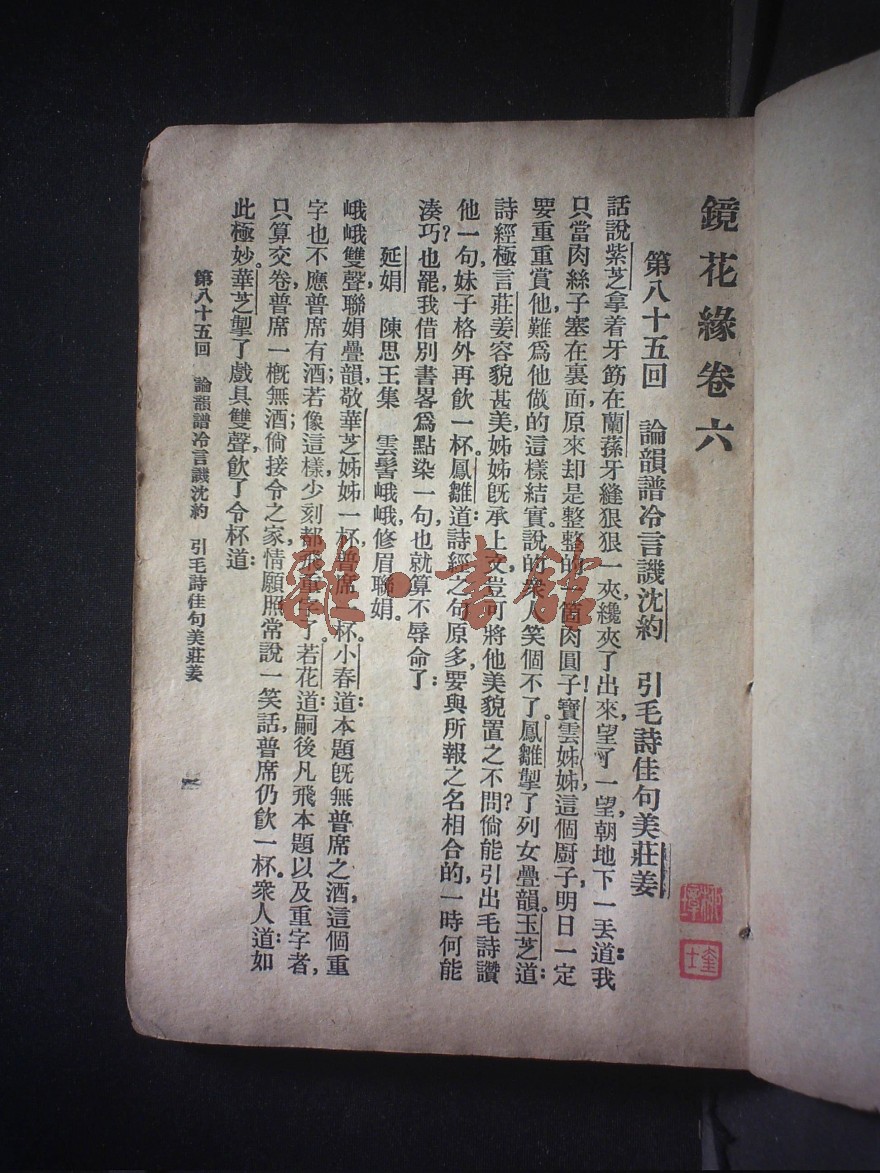 鏡花緣卷六
第八十五回　論韻譜冷言譏沈約　引毛詩佳句美莊姜
話說紫芝拿着牙筯在蘭蓀牙縫狠狠一夾，纔夾了出來，望了一望，朝地下一丟道：我
只當肉絲子塞在裏面，原來却是整整的一箇肉圓子！寶雲姊姊，這個厨子明日一定
要重重賞他，難爲他做的這樣結實。說的衆人笑個不了。鳳雛掣了列女疊韻。玉芝道：
詩經極言莊姜容貌甚美，姊姊旣承上文，豈可將他美貌置之不問？倘能引出毛詩讚
他一句，妹子格外再飲一杯。鳳雛道：詩經之句原多，要與所報之名相合的，一時何能
湊巧？也罷，我借別書畧爲點染一句，也就算不辱命了：
延娟　陳思王集　雲髻峨峨，修眉聯娟。
峨峨雙聲，聯娟疊韻，敬華芝姊姊一杯，普席一杯。小春道：本題旣無普席之酒，這個重
字也不應普席有酒；若像這樣，少刻都飛重字了。若花道：嗣後凡飛本題以及重字者，
只算交卷，普席一槪無酒；倘接令之家，情願照常說一笑話，普席仍飮一杯。衆人道：如
此極妙。華芝掣了戲具雙聲，飮了令杯道：
第八十五回　論韻譜冷言譏沈約　引毛詩佳句美莊姜
一
雜·書館